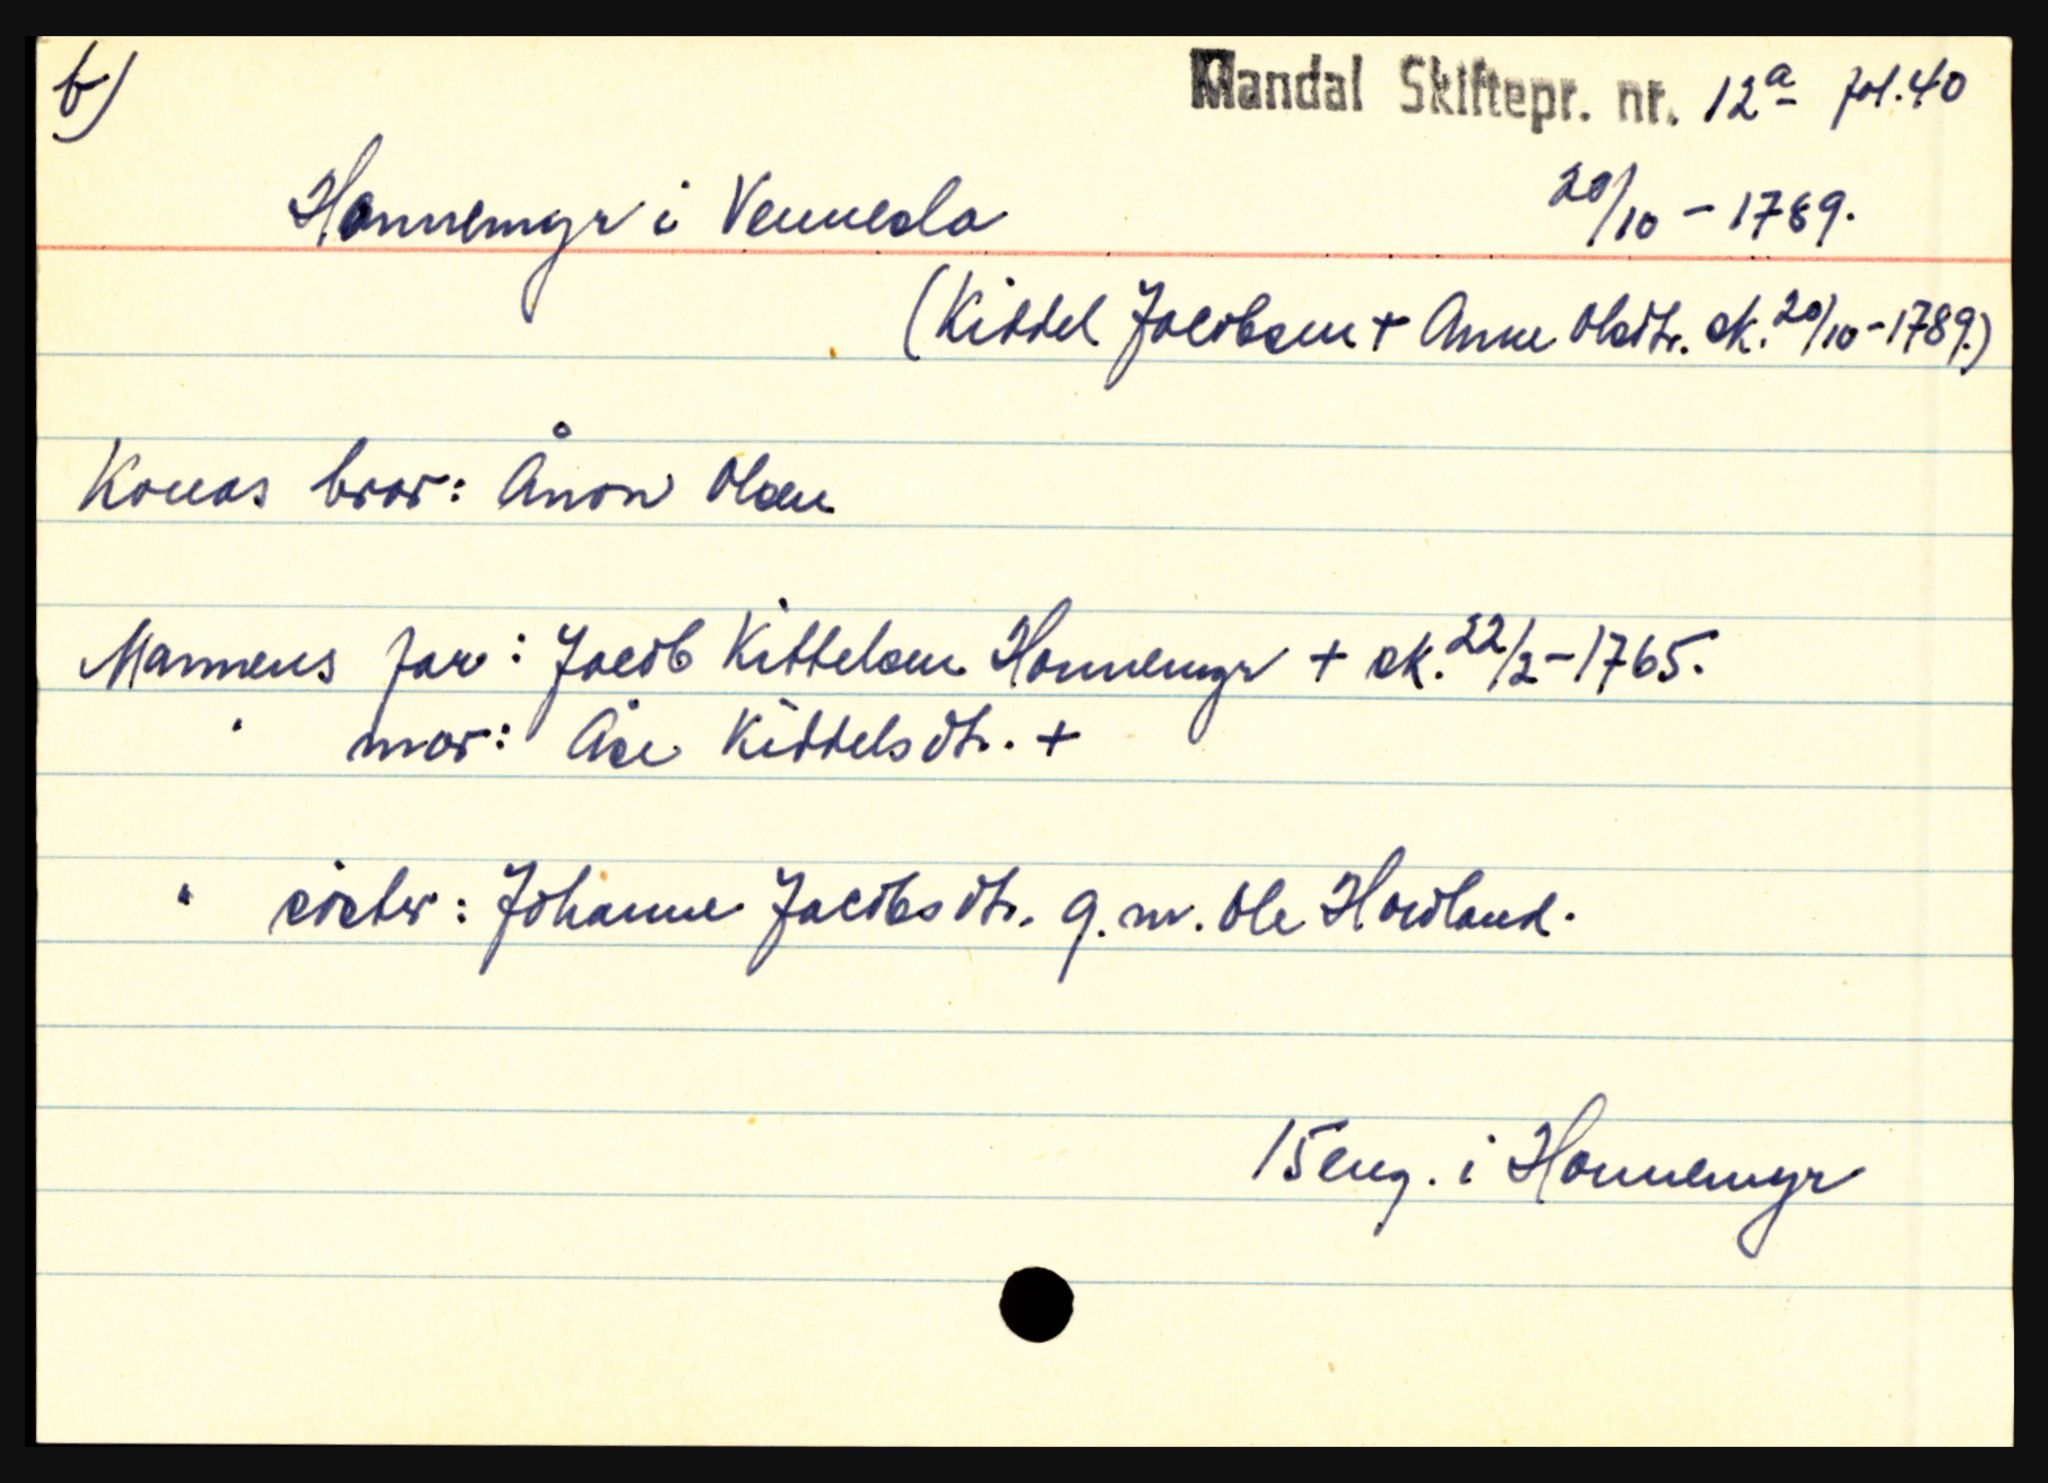 b)
Mandal Skiftepr. nr. 12a fol. 40
Honnemyr i Vennesla 20/10 - 1789.
(Kittel Jacobsen + Anne Olsdtr. sk. 20/10 - 1789.)
Konas bror: Ånon Olsen
Mannens far: Jacob Kittelsen Honnemyr + sk. 22/2 - 1765.
" mor: Åse Kittelsdtr. +
" søster: Johanne Jacobsdtr. g. m. Ole Hordland.
15 eng. i Honnemyr